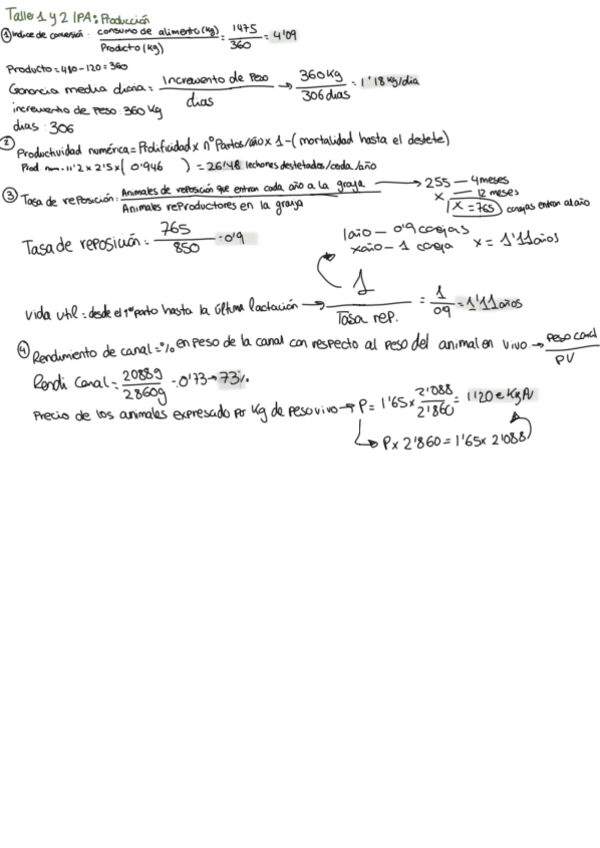 Taller 1 y 2 IPA: Producción
① Indice de conversión: consumo de alimento (kg) / Producto (kg) = 1475 / 360 = 4'09
Producto = 480 - 120 = 360
Ganancia media diaria = Incremento de Peso / días → 360 kg / 306 dias = 1'18 kg/dia
incremento de peso: 360 kg
dias: 306
② Productividad numérica = Prolificidad x nº Partos/año x 1 - (mortalidad hasta el destete)
Prod num = 11'2 x 2'5 x (0'946) = 26'48 lechones destetados/cerda/año
③ Tasa de reposición: Animales de reposición que entran cada año a la granja / Animales reproductores en la granja → 255 — 4 meses
x — 12 meses
x = 765 conejas entran al año
Tasa de reposición = 765 / 850 = 0'9
1 año — 0'9 conejas
x año — 1 coneja x = 1'11 años
vida util = desde el 1er parto hasta la última lactación → 1 / Tasa rep. = 1 / 0'9 = 1'11 años
④ Rendimiento de canal = % en peso de la canal con respecto al peso del animal en vivo → peso canal / PV
Rendi Canal = 2088g / 2860g = 0'73 → 73%
Precio de los animales expresado por kg de peso vivo → P = 1'65 x 2'088 / 2'860 = 1'20 € Kg PV
P x 2'860 = 1'65 x 2'088